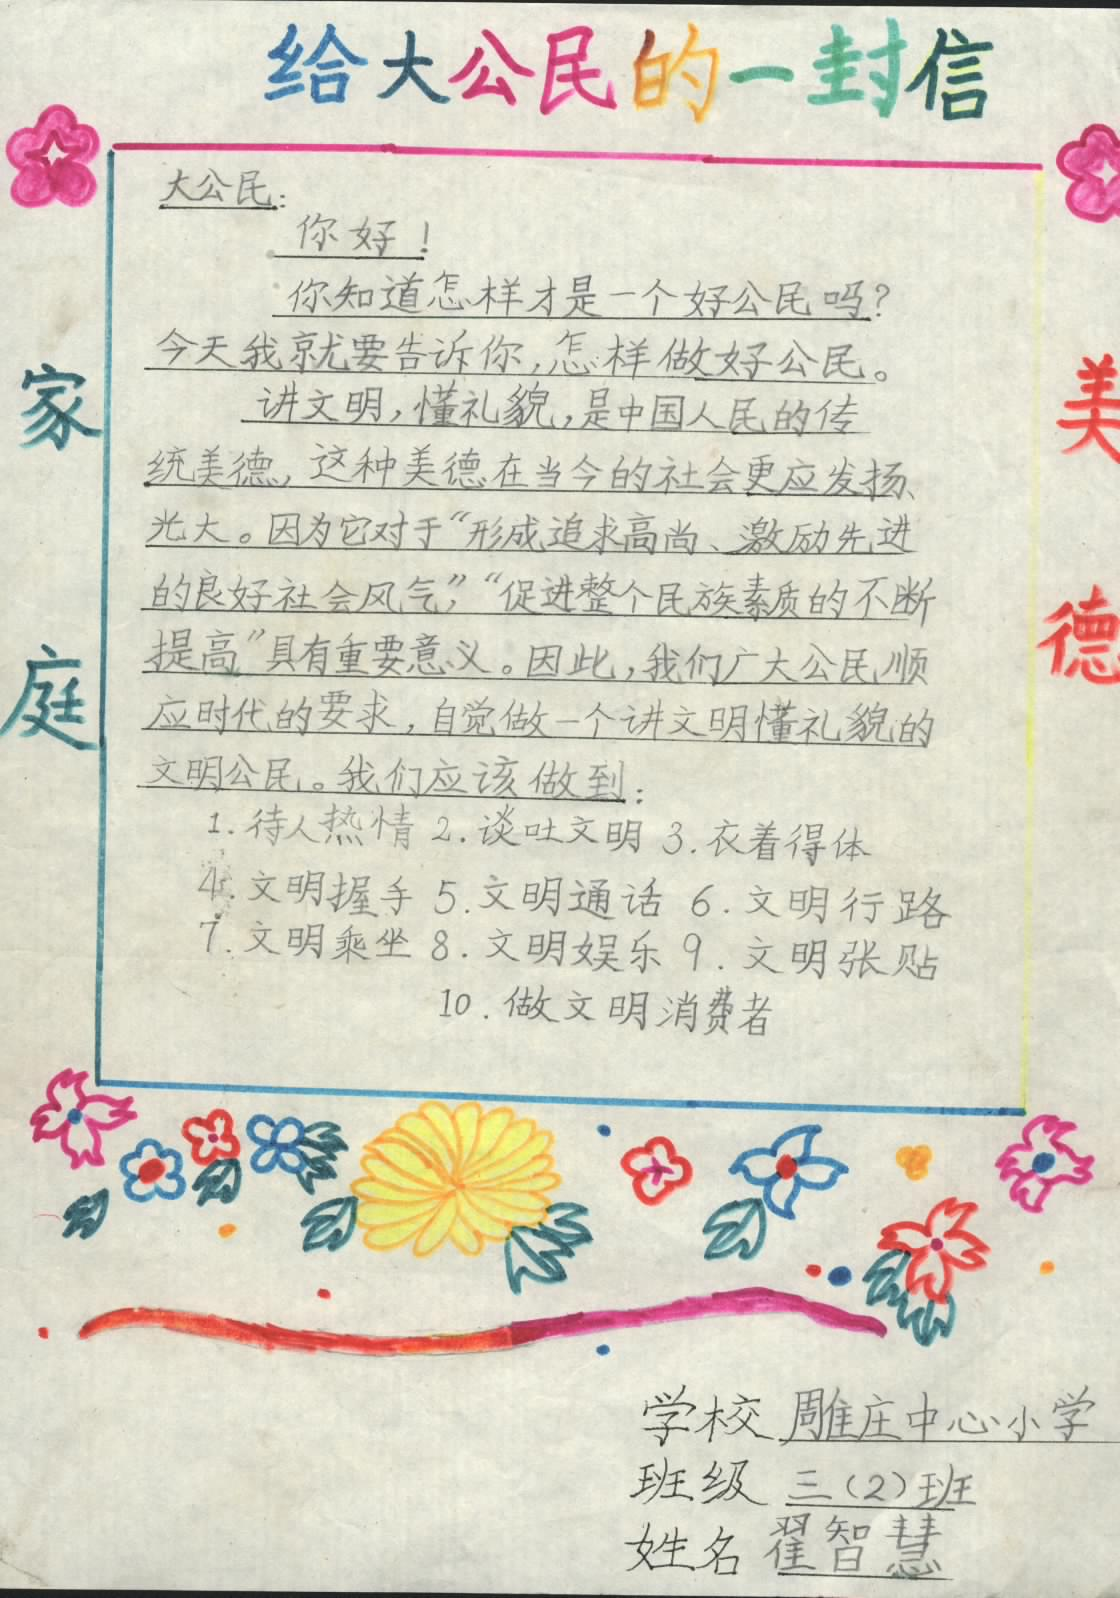 给大公民的一封信
家庭
美德
大公民：
你好！
你知道怎样才是一个好公民吗？
今天我就要告诉你，怎样做好公民。
讲文明，懂礼貌，是中国人民的传
统美德，这种美德在当今的社会更应发扬、
光大。因为它对于“形成追求高尚、激励先进
的良好社会风气”，“促进整个民族素质的不断
提高”具有重要意义。因此，我们广大公民顺
应时代的要求，自觉做一个讲文明懂礼貌的
文明公民。我们应该做到：
1.待人热情 2.谈吐文明 3.衣着得体
4.文明握手 5.文明通话 6.文明行路
7.文明乘坐 8.文明娱乐 9.文明张贴
10.做文明消费者
学校 雕庄中心小学
班级 三（2）班
姓名 翟智慧